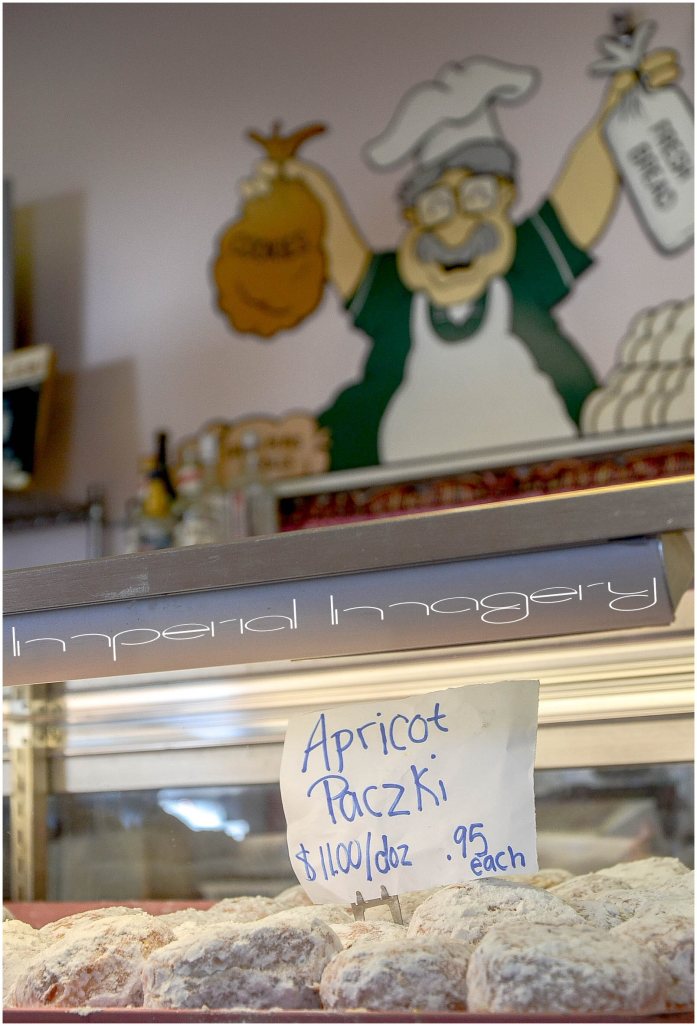 COOKIES
FRESH
BREAD
Imperial Imagery
Apricot
Paczki
$11.00/doz .95
each